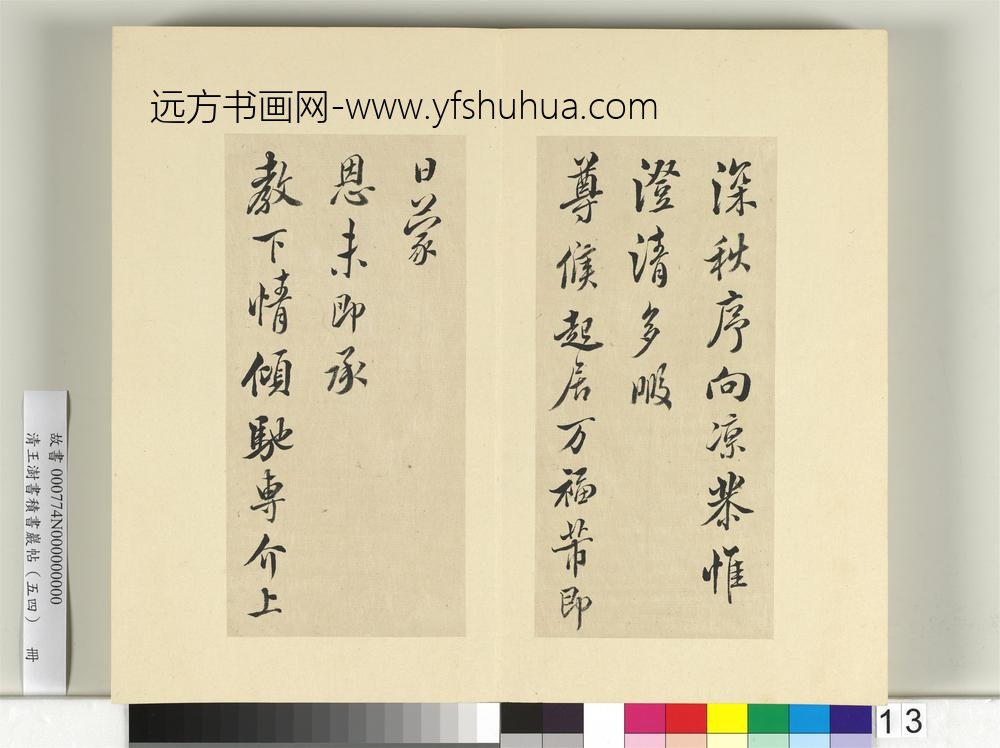 远方书画网-www.yfshuhua.com
深秋序向凉恭惟
澄清多暇
尊候起居万福芾即
日蒙
恩未即承
教下情倾驰専介上
故書 000774N000000000
清王澍書積書巖帖（五四） 冊
13